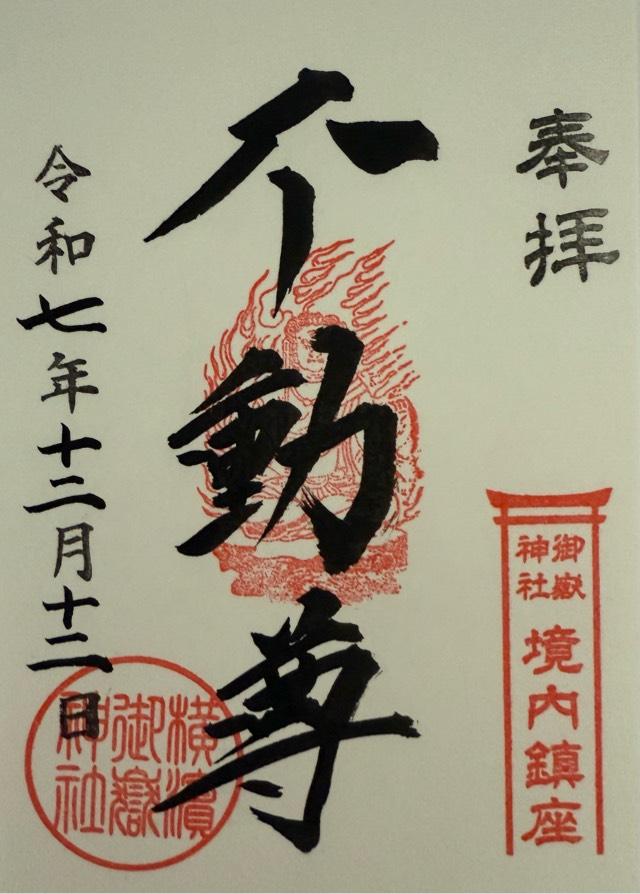 奉拝
御嶽
神社
境内鎮座
不動尊
令和七年十二月十二日
横濱
御嶽
神社